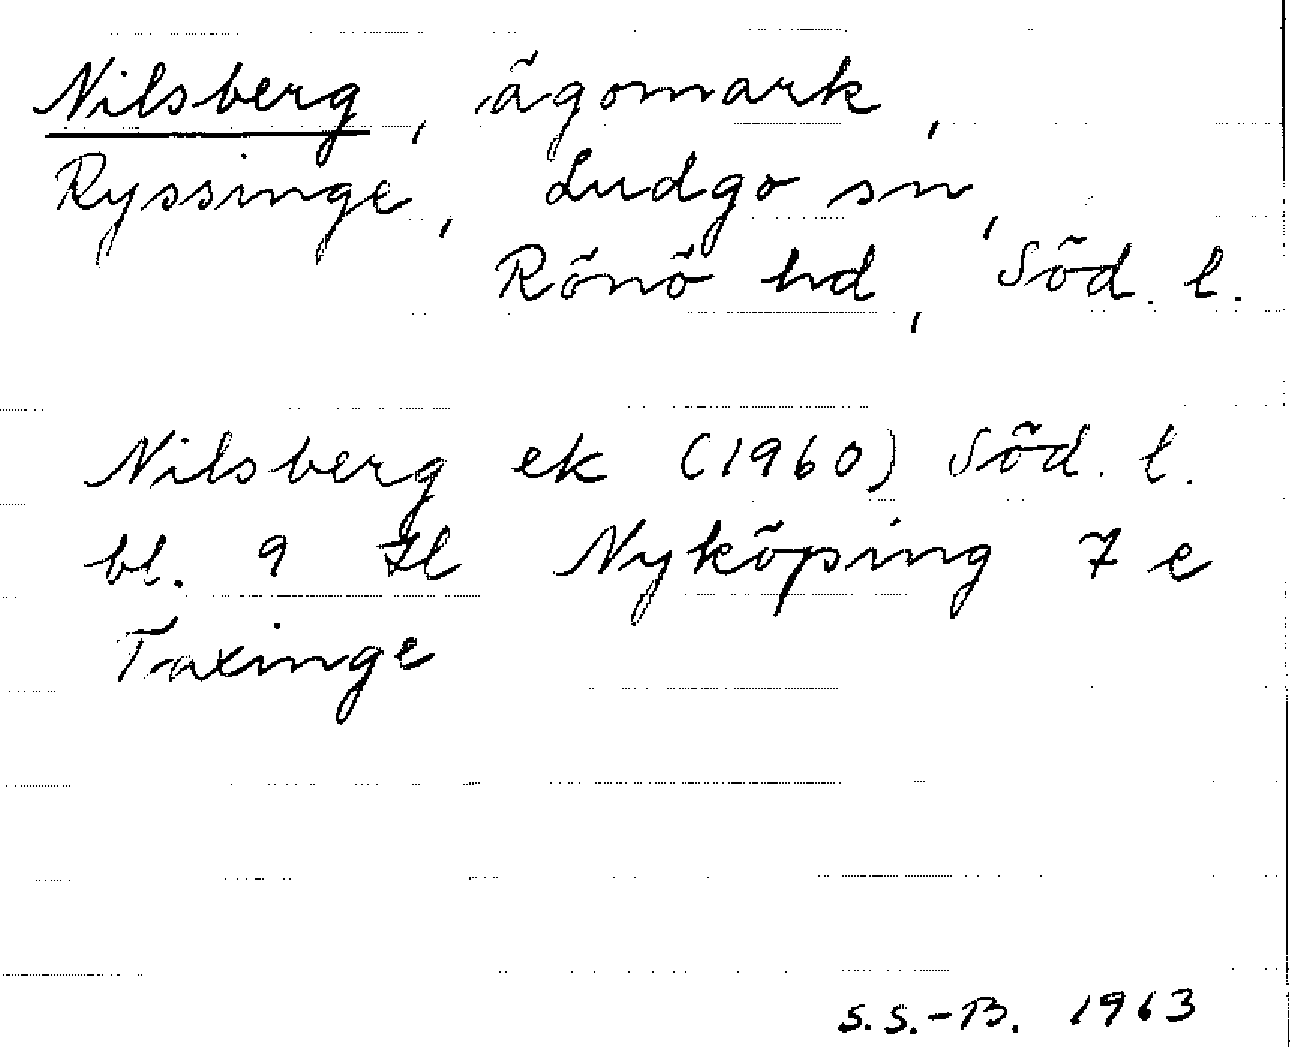 Nilsberg, ägomark,
Ryssinge, Ludgo sn,
Rönö hd, Söd. l.
Nilsberg ek (1960) Söd. l.
bl. 9 Il Nyköping 7 e
Taxinge
S.S.-B. 1963